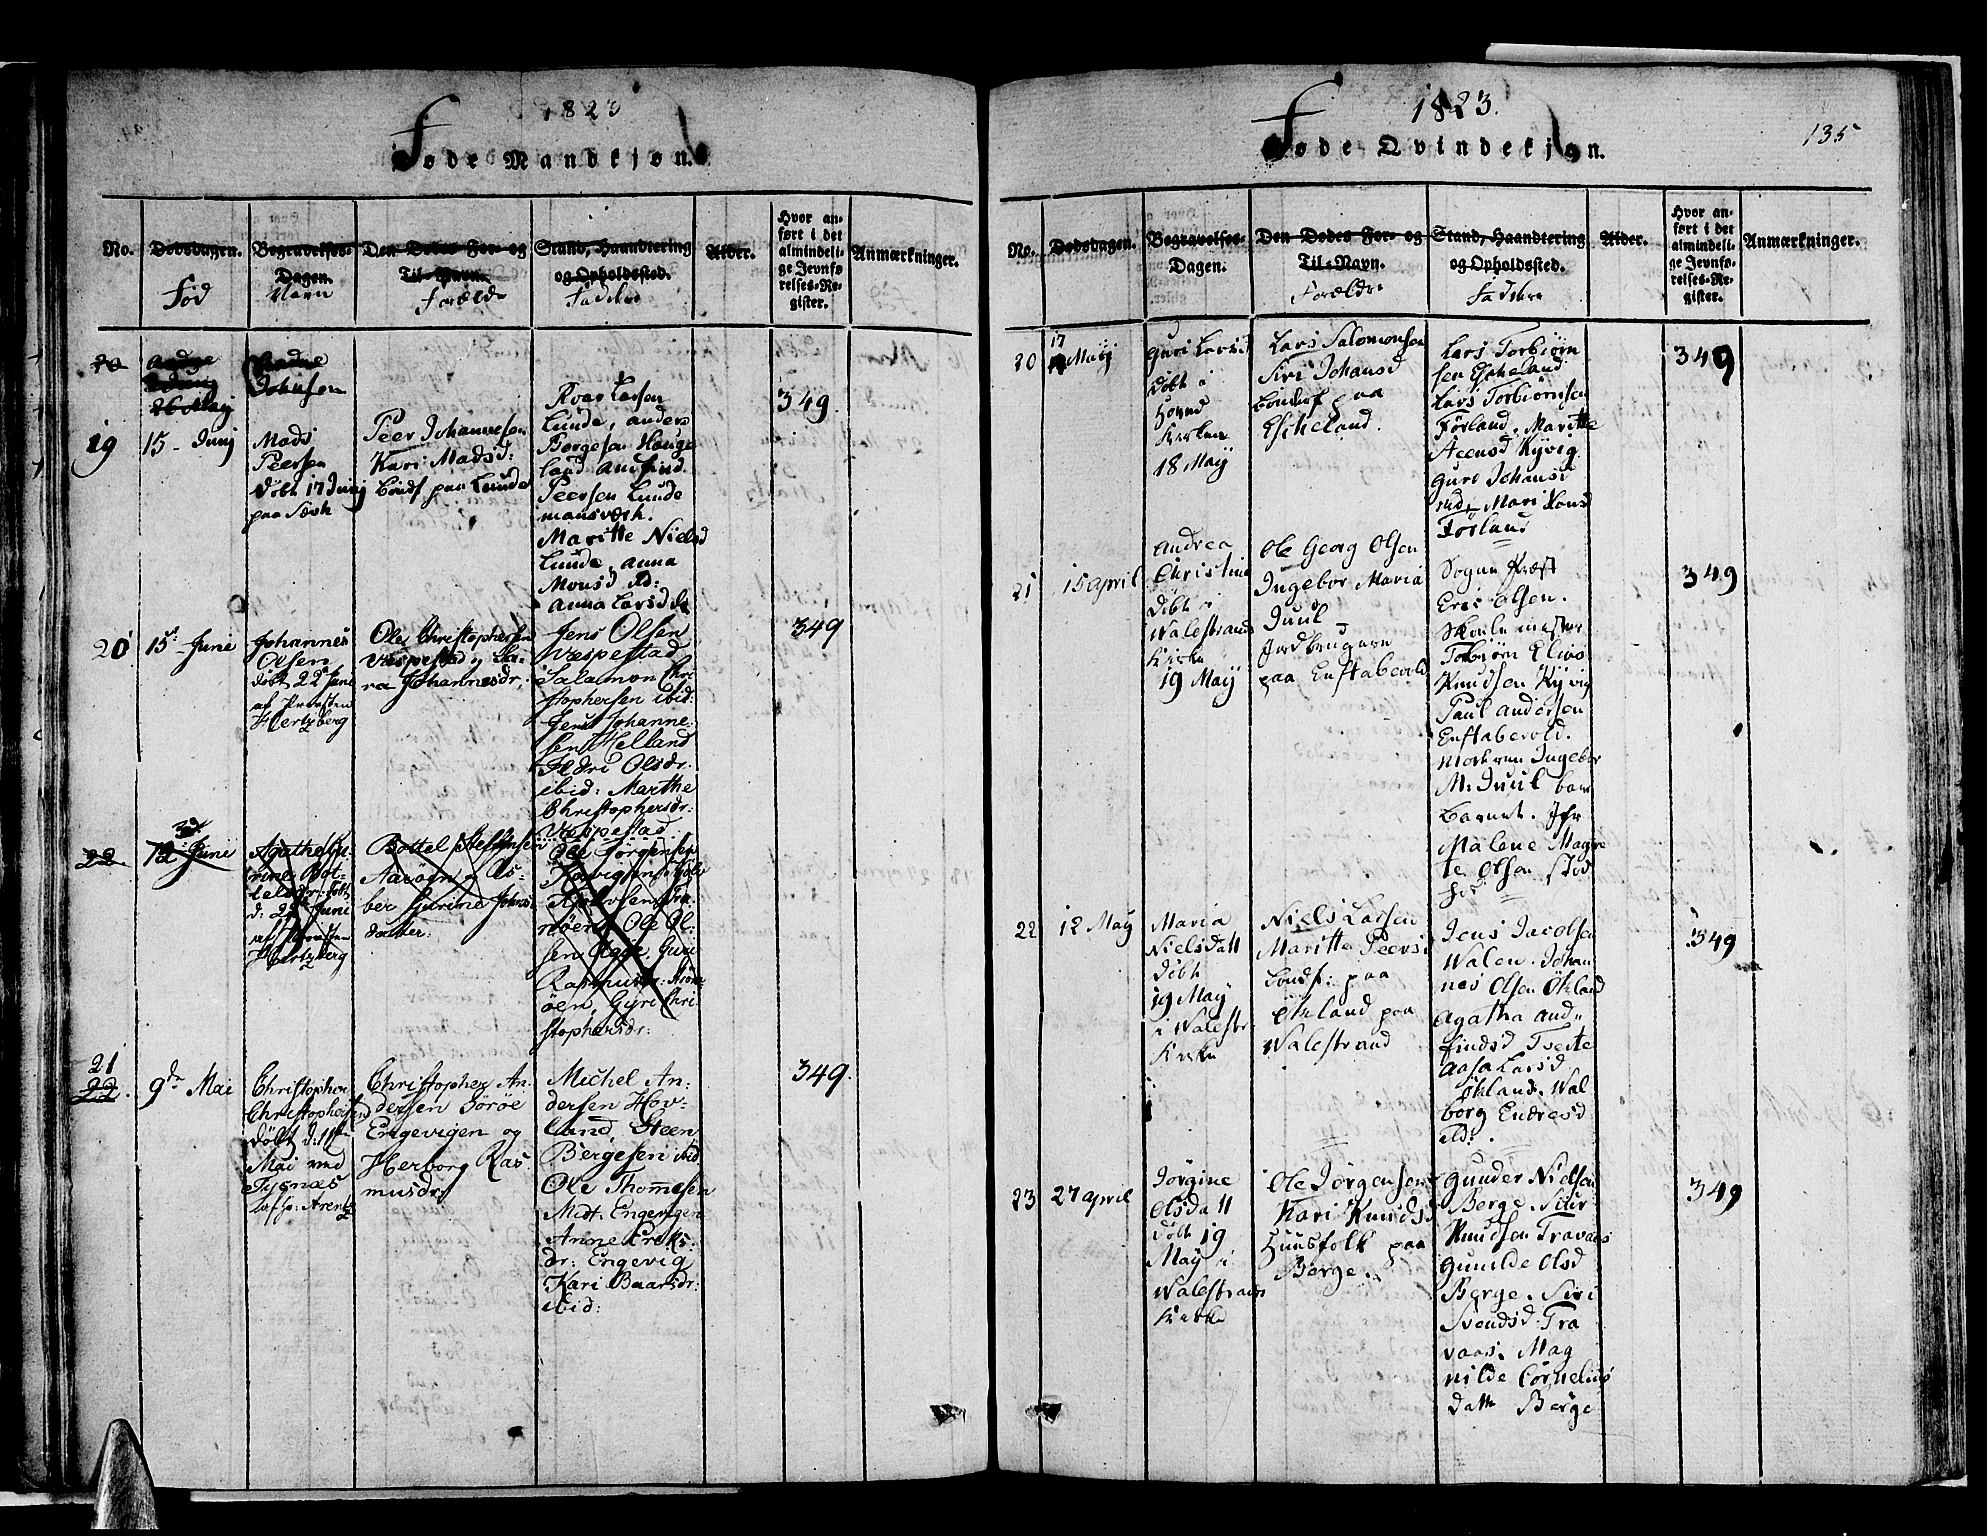 1823
Føde Mandkjøn.
No.
Dødsdagen.
Fød
Begravelses-
Dagen.
Navn
Den Dødes For- og
Til-Navn.
Forældre
Stand, Haandtering
og Opholdssted.
Faddere
Alder.
Hvor an-
ført i det
almindeli-
ge Jevnfø-
relses-Re-
gister.
Anmærkninger.
26 Maij
Johnsen
19
15 Junj
Mads
Peersen
døbt 17 Junj
Peer Johannesen
Kari Madsd:
bondf paa Lunde
Roar Larsen
Lunde, anders
Borgesen Hauge
land
Peersen Lunde
Maritte Nielsd
Lunde, anna
Monsd ibd:
anna Larsd ibd
349
20
15de Junie
Johannes
Olsen
døbt 22de Juni
af Provsten
Hertzberg
Ole Christophersen
Vespestad og Sa-
ra Johannesdr:
Jens Olsen
Wespestad
Salamon Chri
stophersen ibid:
Jens Johanne-
sen Helland
Ildri Olsdr.
ibid: Marthe
Christophersdr:
Vespestad.
349
22
3d
12 Junie
Agathe Gu-
rine Bot-
telsdr: døbt
d: 22de Juni
af Provsten
Hertzberg
Bottel
Aarøen og As-
ber Gurine Johns
datter.
Ole Jørgensen
Ole Ol-
sen
Rasmusdr:
øen, Gyri Chri-
stophersdr:
21
22.
9de Mai
Christopher
Christophersen
døbt d: 11te
Mai ved
Tysnæs
af Hr: Arentz
Christopher An-
dersen Børøe
Engevigen og
Herborg Ras-
musdr
Michel An-
dersen Hov-
land, Steen
Bergesen ibid
Ole Thomesen
Midt: Engevigen
Anne Eriks-
dr: Engevig
Kari Baarsdr:
ibid:
349.
1823.
135
Føde Qvindekjøn.
No.
Dødsdagen.
Begravelses-
Dagen.
Den Dødes For- og
Til-Navn.
Forældre
Stand, Haandtering
og Opholdssted.
Faddere
Alder.
Hvor an-
ført i det
almindeli-
ge Jevnfø-
relses-Re-
gister.
Anmærkninger.
20
17
Maij
Guri Larsd
Døbt i
Kirken
18 Maij
Lars Salomonsen
Siri Johansd
bondef paa
Eskeland.
Lars Torbiørn
sen Eskeland
Lars Torbiørnsen
Førland, Maritte
Kyvig
Guri Johansd
ibd, Mari Hansd
Førland
349
21
15 april
Andrea
Christine
Døbt i
Walestrands
Kirke
19 Maij
Ole Georg Olsen
Ingebor Maria
Juul
Jordbrugere
paa Enstabevold
Sogne Præst
Eric Olsen.
Skoule mester
Torbiørn
Knudsen Kyvig
Paul andersen
Enstabevold.
Ingebor
M: Juul bar
Barnet. Jfr
Malene Magre
te Olsen stod
hos
349
22
12 May
Maria
Nielsdatt
Døbt
19 Maij
i Walestr:
Kirke
Niels Larsen
Maritte Peersd
bondf: paa
Økland paa
Walestrand
Jens Jacobsen
Walen. Johan
nes Olsen Økland
Agatha and
findsd Tveite
Aasa Larsd
Økland. Wal
borg Endresd
ibd.
349
23
27 april
Jørgine
Olsdatt
Døbt 19
Maij i
Walestrands
Kirke
Ole Jørgensen
Kari Knudsd
Huusfolk paa
Børge.
Gunder Nielsen
Berge. Siur
Knudsen Travaas
Gunilde Olsd
Berge. Siri
Svendsd Tra
vaas. Mag
nilde Cornelius
datt Børge
349